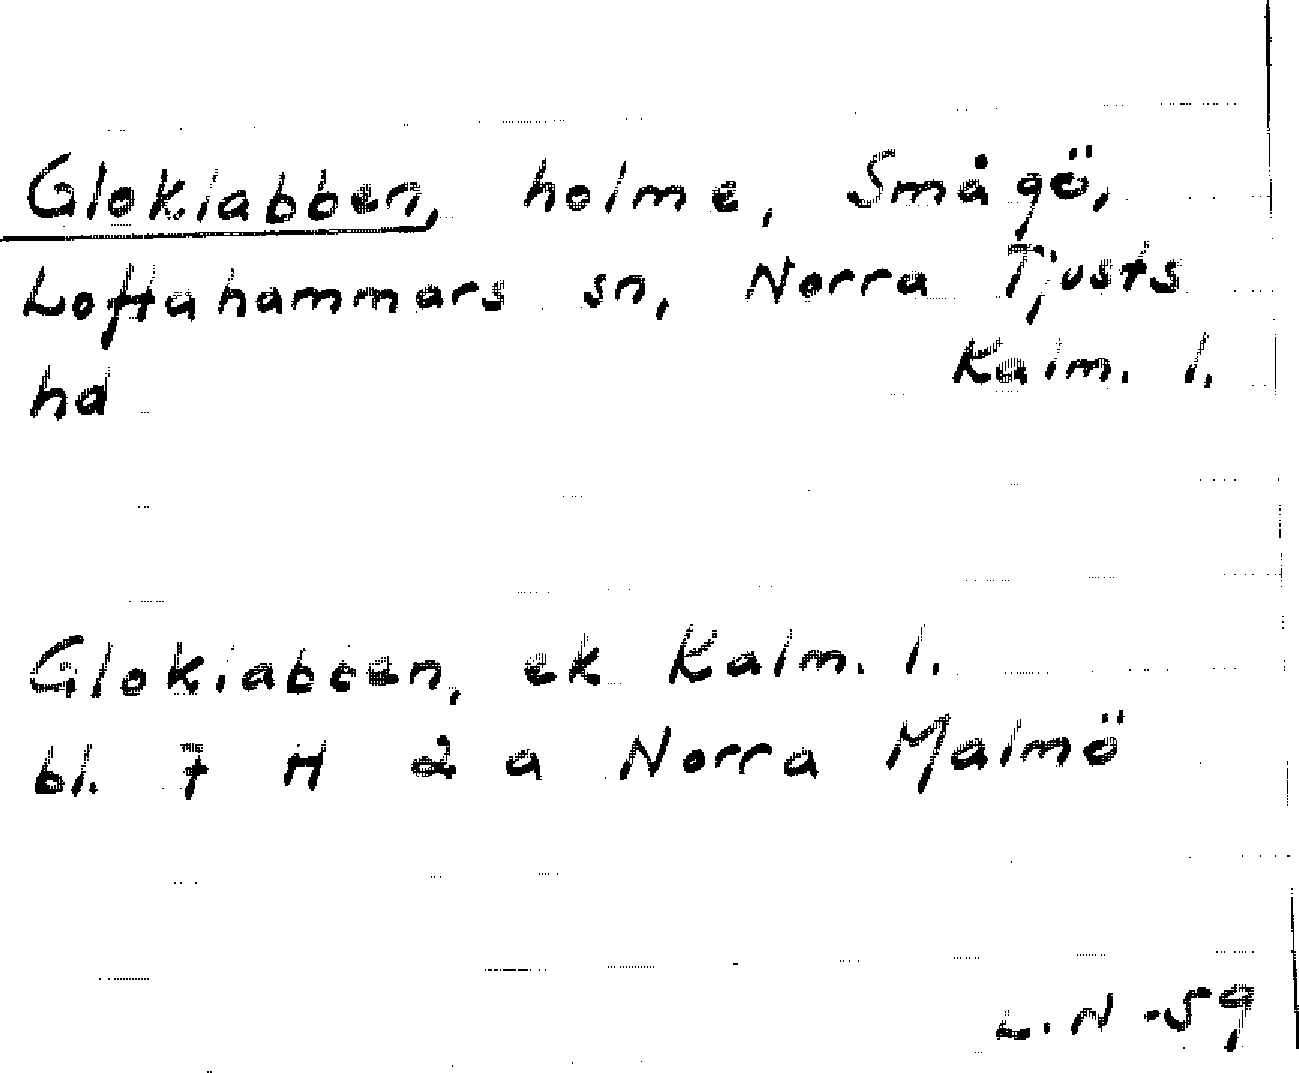 Glokiabben, holme, Smågö,
Loftahammars sn, Norra Tjusts
hd Kalm. l.
Glokiabben, ek Kalm. l.
bl. 7 H 2 a Norra Malmö
L.N -59